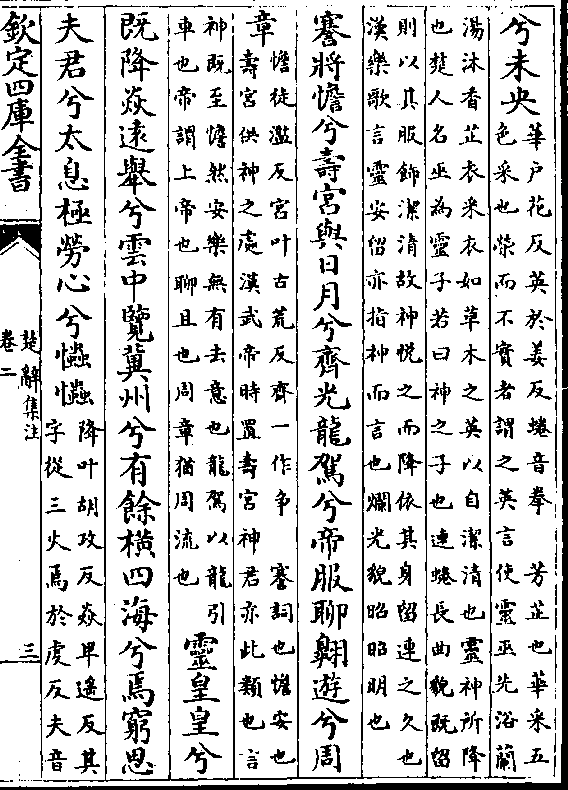 兮未央
華戶花反英於姜反蜷音拳　芳芷也華采五
色采也榮而不實者謂之英言使靈巫先浴蘭
湯沐香芷衣采衣如草木之英以自潔清也靈神所降
也楚人名巫為靈子若曰神之子也連蜷長曲貌既留
則以其服飾潔清故神悅之而降依其身留連之久也
漢樂歌言靈安留亦指神而言也爛光貌昭昭明也
謇將憺兮壽宮與日月兮齊光龍駕兮帝服聊翺遊兮周
章
憺徒濫反宮叶古荒反齊一作争　謇詞也憺安也
壽宮供神之處漢武帝時置壽宮神君亦此類也言
神既至憺然安樂無有去意也龍駕以龍引
車也帝謂上帝也聊且也周章猶周流也
靈皇皇兮
既降焱遠舉兮雲中覽冀州兮有餘橫四海兮焉窮思
夫君兮太息極勞心兮𢥞𢥞
降叶胡攻反焱卑遙反其
字從三火焉於虔反夫音
欽定四庫全書
楚辭集注
卷二
三